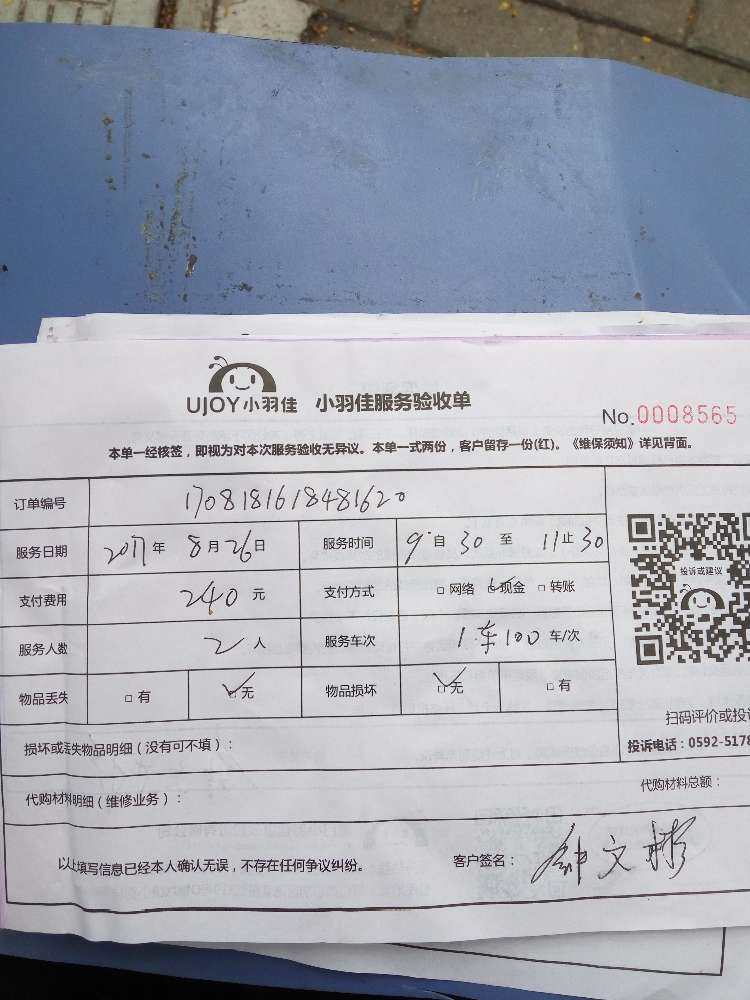 UJOY小羽佳 小羽佳服务验收单
No.0008565
本单一经核签，即视为对本次服务验收无异议。本单一式两份，客户留存一份(红)。《维保须知》详见背面。
订单编号 1708181618481620
服务日期 2017年 8月26日 服务时间 9自30至11止30
支付费用 240元 支付方式 □网络 ☑现金 □转账
服务人数 2人 服务车次 1车100车/次
物品丢失 □有 ☑无 物品损坏 ☑无 □有
投诉或建议
扫码评价或投诉
投诉电话：0592-5178
损坏或丢失物品明细（没有可不填）：
代购材料明细（维修业务）： 代购材料总额：
以上填写信息已经本人确认无误，不存在任何争议纠纷。 客户签名：钟文彬